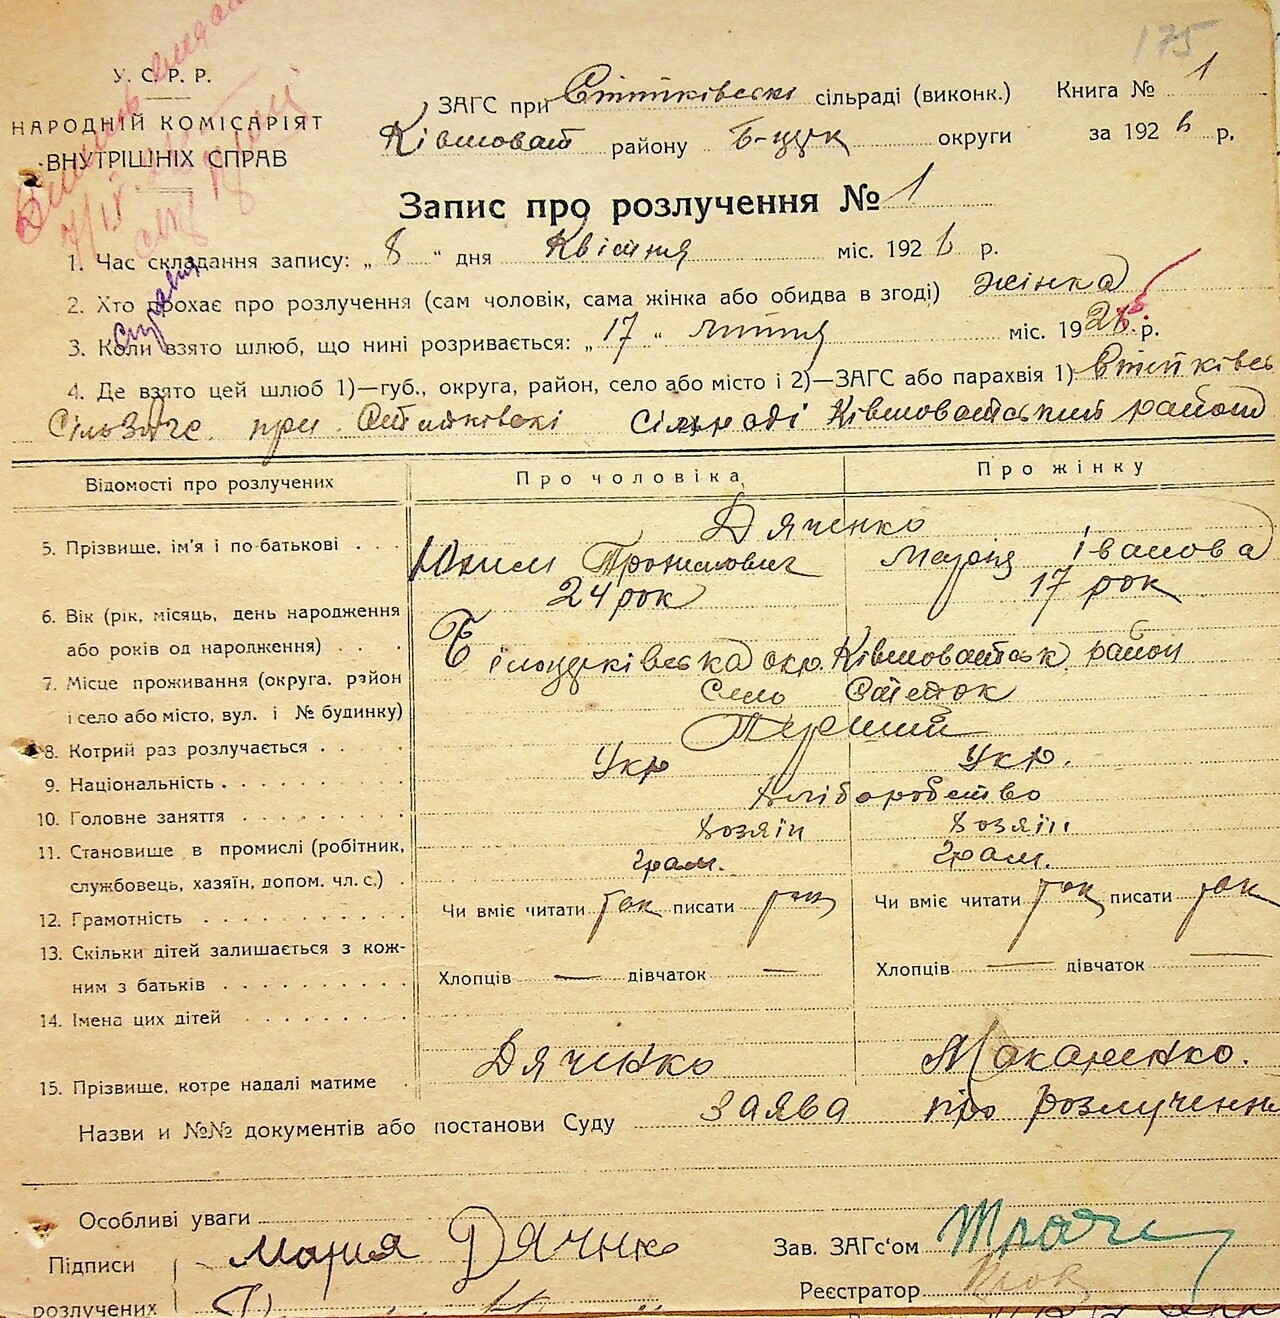 175
У. С. Р. Р.
НАРОДНІЙ КОМІСАРІЯТ
ВНУТРІШНІХ СПРАВ
ЗАГС при сільраді (виконк.) Книга № 1
Ківшоват району Б-Церк округи за 1926 р.
Запис про розлучення № 1
1. Час складання запису: „ 8 “ дня Квітня міс. 1926 р.
2. Хто прохає про розлучення (сам чоловік, сама жінка або обидва в згоді) жінка
3. Коли взято шлюб, що нині розривається: „ 17 “ міс. 192 р.
4. Де взято цей шлюб 1)—губ., округа, район, село або місто і 2)—ЗАГС або парахвія 1)
при Сільраді Ківшоватський район
Відомості про розлучених
Про чоловіка
Про жінку
5. Прізвище, ім'я і по-батькові . . .
Дяченко
Марія Іванова
6. Вік (рік, місяць, день народження
або років од народження) . . .
24 рок
17 рок
7. Місце проживання (округа, район
і село або місто, вул. і № будинку)
Білоцерківська окр. Ківшоватськ район
Село
8. Котрий раз розлучається . . . .
Перший
9. Національність . . . . . .
Укр
Укр.
10. Головне заняття . . . . . . . .
Хліборобство
11. Становище в промислі (робітник,
службовець, хазяїн, допом. чл. с.) .
Хозяїн
Хозяїн
12. Грамотність . . . . . . . . .
грам.
грам.
Чи вміє читати так писати так
Чи вміє читати так писати так
13. Скільки дітей залишається з кож-
ним з батьків . . . . . . . . .
Хлопців — дівчаток —
Хлопців — дівчаток —
14. Імена цих дітей . . . . . . . .
15. Прізвище, котре надалі матиме .
Дяченко
Макаренко.
Назви и №№ документів або постанови Суду заява про розлучення
Особливі уваги
Підписи
розлучених
Мария Дячнко
Зав. ЗАГс'ом
Реєстратор